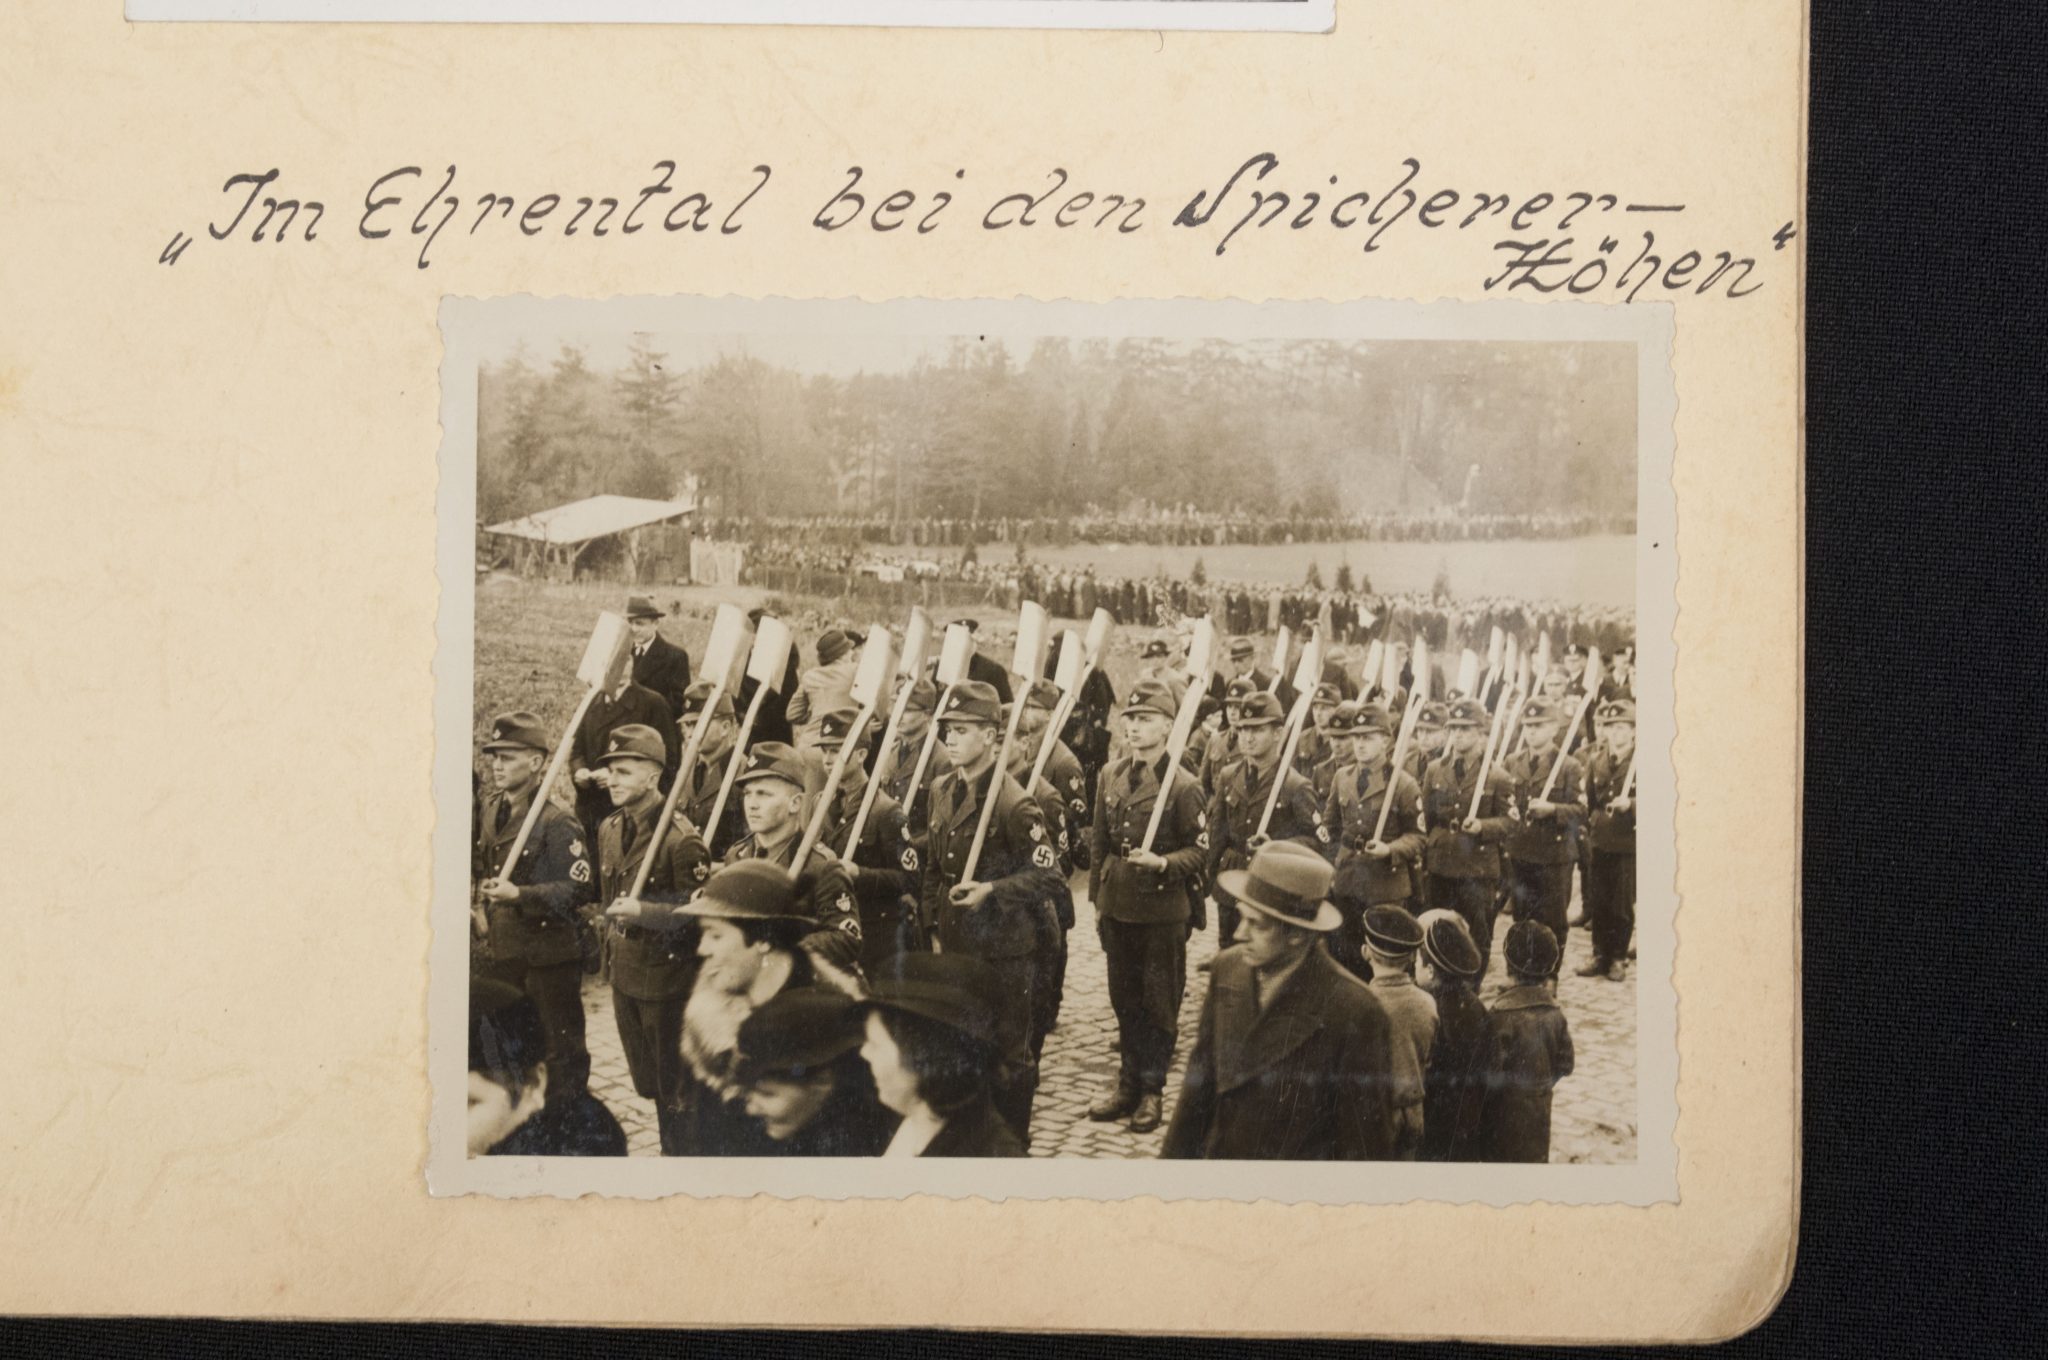 „Im Ehrental bei den Spicherer-
Höhen“